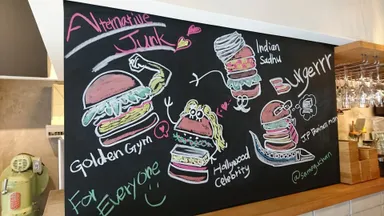 Alternative
Junk
Indian
Sadhu
urgerrr
Golden Gym
Hollywood
Celebrity
For
Everyone